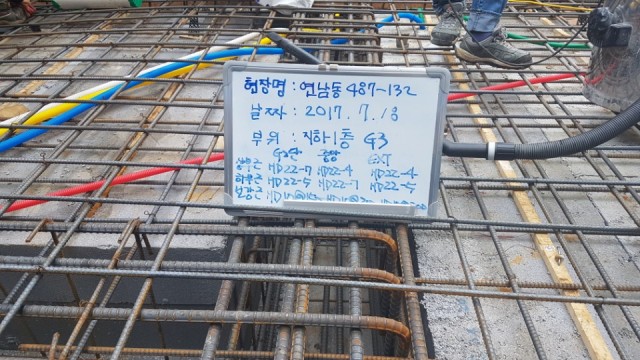 현장명 : 연남동 487-132
날짜 : 2017. 7. 18
부위 : 지하1층 G3
중앙 EXT
상부근 HD22-7 HD22-4 HD22-4
하부근 HD22-5 HD22-7 HD22-5